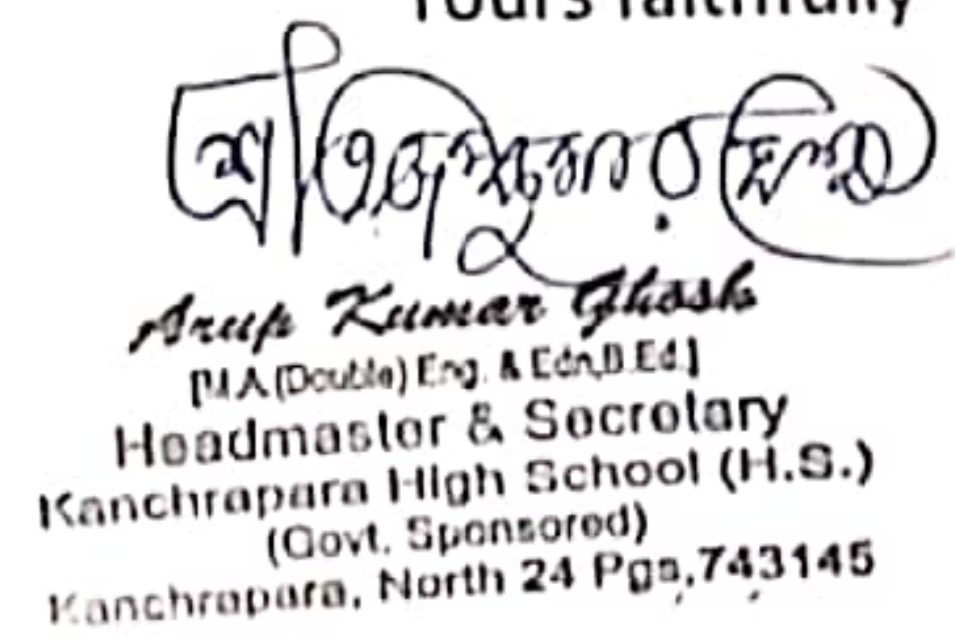 Yours faithfully
শ্রী অরূপ কুমার ঘোষ
Arup Kumar Ghosh
[M.A (Double) Eng. & Edn,B.Ed.]
Headmaster & Secretary
Kanchrapara High School (H.S.)
(Govt. Sponsored)
Kanchrapara, North 24 Pgs,743145